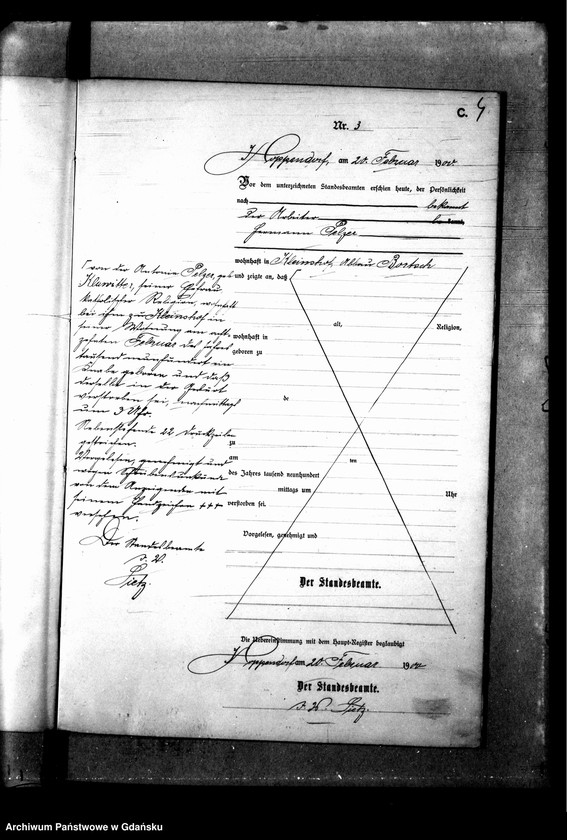 C. 4
Nr. 3
Hoppendorf, am 20. Februar 1900
Vor dem unterzeichneten Standesbeamten erschien heute, der Persönlichkeit
nach bekannt
Der Arbeiter
Hermann Pelzer
wohnhaft in Kleinshof, Abbau Bortsch
und zeigte an, daß
von der Antonie Pelzer, geb.
Klawitter, seiner Ehefrau
katholischer Religion, wohnhaft
bei ihm zu Kleinshof in
seiner Wohnung am acht-
zehnten Februar des Jahres
tausend neunhundert ein
Knabe geboren und daß
derselbe in der Geburt
verstorben sei, nachmittags
um 3 Uhr.
Nebenstehende 22 Druckzeilen
gestrichen.
Vorgelesen, genehmigt und
wegen Schreibensunkunde
von dem Anzeigenden mit
seinem Handzeichen +++
versehen.
Der Standesbeamte
i. V.
Pietz.
alt, Religion,
wohnhaft in
geboren zu
de
zu
am ten
des Jahres tausend neunhundert
mittags um Uhr
verstorben sei.
Vorgelesen, genehmigt und
Der Standesbeamte.
Die Uebereinstimmung mit dem Haupt-Register beglaubigt
Hoppendorf am 20. Februar 1900
Der Standesbeamte.
i. V. Pietz.
Archiwum Państwowe w Gdańsku